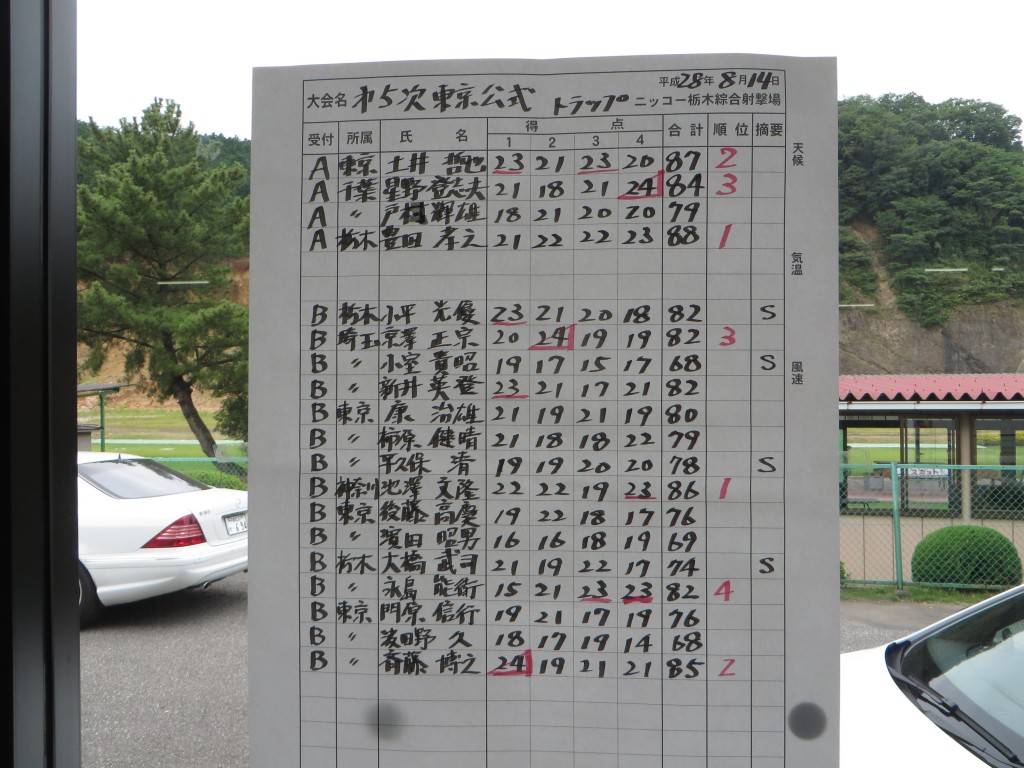 平成28年8月14日
大会名 オ5次東京公式 トラップ ニッコー栃木綜合射撃場
受付 所属 氏名 得点 合計 順位 摘要
1 2 3 4
A 東京 土井 哲也 23 21 23 20 87 2
A 千葉 星野 登志夫 21 18 21 24 84 3
A 〃 戸村 輝雄 18 21 20 20 79
A 栃木 豊田 孝之 21 22 22 23 88 1
B 栃木 小平 光優 23 21 20 18 82 S
B 埼玉 京澤 正宗 20 24 19 19 82 3
B 〃 小室 貴昭 19 17 15 17 68 S
B 〃 新井 英登 23 21 17 21 82
B 東京 康 治雄 21 19 21 19 80
B 〃 柿原 健晴 21 18 18 22 79
B 〃 平久保 清 19 19 20 20 78 S
B 神奈川 池澤 文隆 22 22 19 23 86 1
B 東京 後藤 高慶 19 22 18 17 76
B 〃 濱田 昭男 16 16 18 19 69
B 栃木 大橋 武司 21 19 22 17 74 S
B 〃 永島 能術 15 21 23 23 82 4
B 東京 門原 信行 19 21 17 19 76
B 〃 波田野 久 18 17 19 14 68
B 〃 斉藤 博之 24 19 21 21 85 2
天候
気温
風速